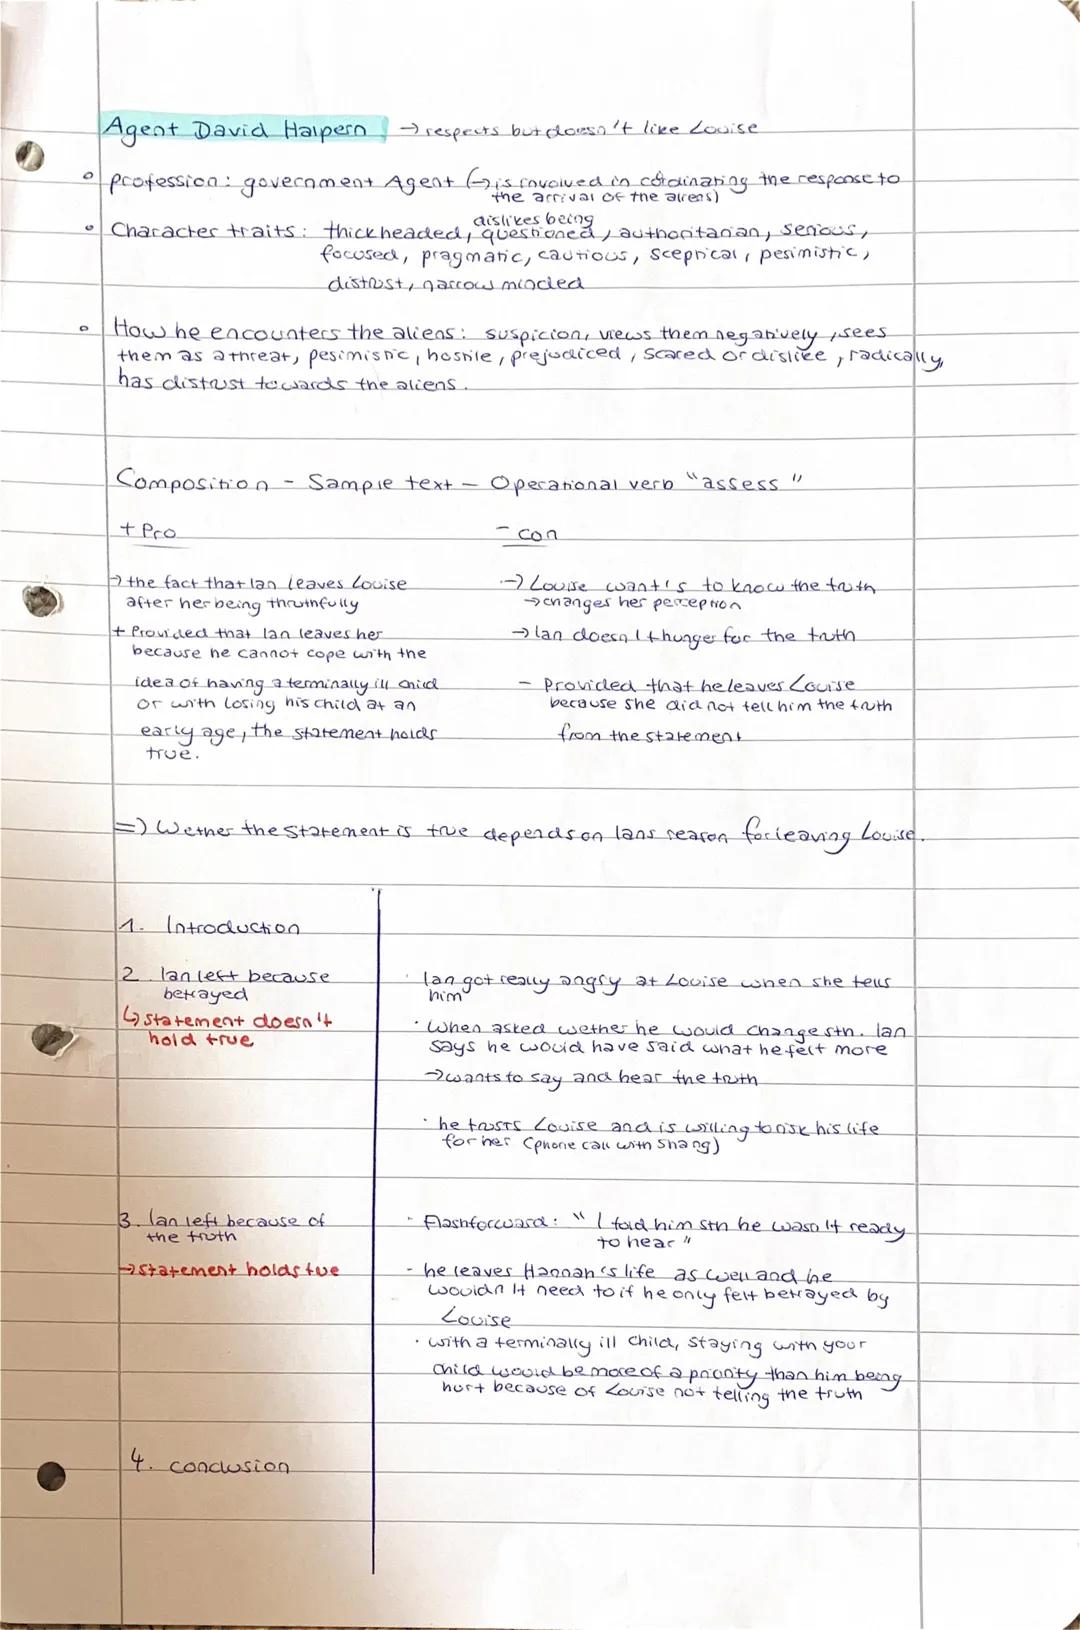 Agent David Halpern → respects but doesn't like Louise
profession: government Agent (→ is involved in cordinating the response to
the arrival of the aliens)
Character traits: thickheaded, dislikes being questioned, authoritarian, serious,
focused, pragmatic, cautious, sceptical, pesimistic,
distrust, narrow minded
How he encounters the aliens: suspicion, views them negatively, sees
them as a threat, pesimistic, hostile, prejudiced, scared or dislike, radically,
has distrust towards the aliens.
Composition - Sample text - Operational verb "assess"
+ Pro
→ the fact that Ian leaves Louise
after her being thruthfully
+ Provided that Ian leaves her
because he cannot cope with the
idea of having a terminally ill child
or with losing his child at an
early age, the statement holds
true.
- con
→ Louise want's to know the truth
→ changes her perception
→ Ian doesn't hunger for the truth
- Provided that he leaves Louise
because she did not tell him the truth
from the statement
=> Wether the statement is true depends on Ians reason for leaving Louise.
1. Introduction
2. Ian left because
betrayed
↳ statement doesn't
hold true
· Ian got really angry at Louise when she tells
him
· When asked wether he would change sth. Ian
says he would have said what he felt more
→ wants to say and hear the truth
· he trusts Louise and is willing to risk his life
for her (phone call with Shang)
3. Ian left because of
the truth
→ statement holds tue
- Flashforward: "I told him sth he wasn't ready
to hear"
- he leaves Hannah's life as well and he
wouldn't need to if he only felt betrayed by
Louise
· with a terminally ill child, staying with your
child would be more of a priority than him being
hurt because of Louise not telling the truth
4. conclusion